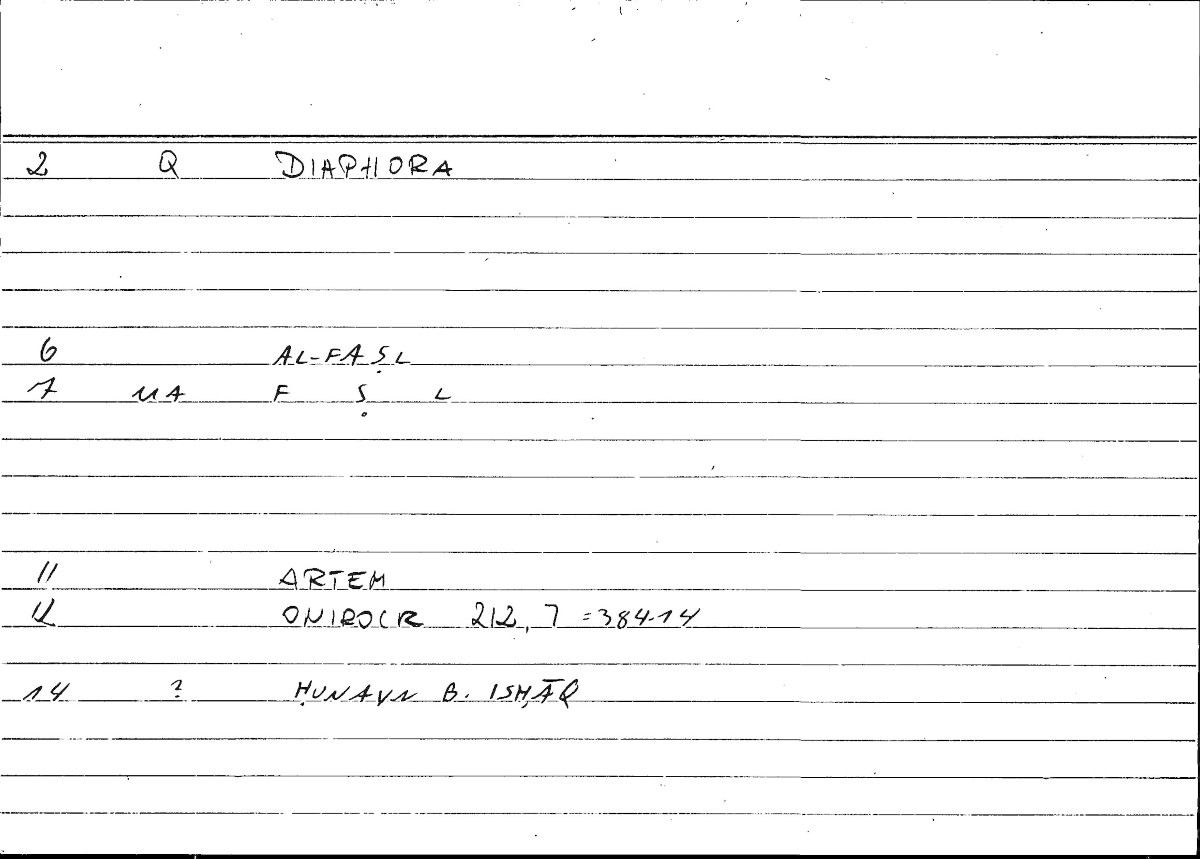 2 Q DIAPHORA
6 AL-FAṢL
7 MA F Ṣ L
11 ARTEM
12 ONIROCR 212,7 =384.14
14 ? ḤUNAYN B. ISḤĀQ